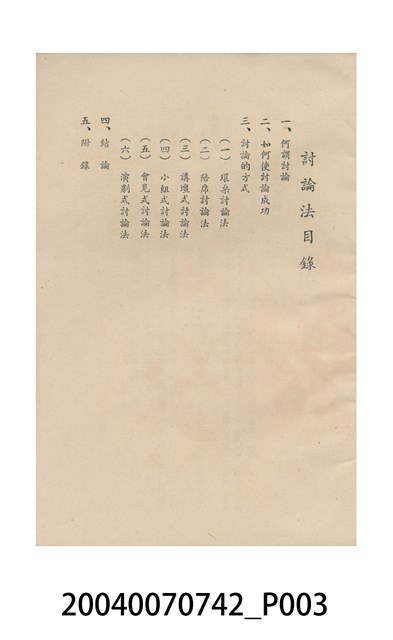 討論法目錄
一、何謂討論
二、如何使討論成功
三、討論的方式
(一)環桌討論法
(二)陪席討論法
(三)講壇式討論法
(四)小組式討論法
(五)會見式討論法
(六)演劇式討論法
四、結論
五、附錄
20040070742_P003